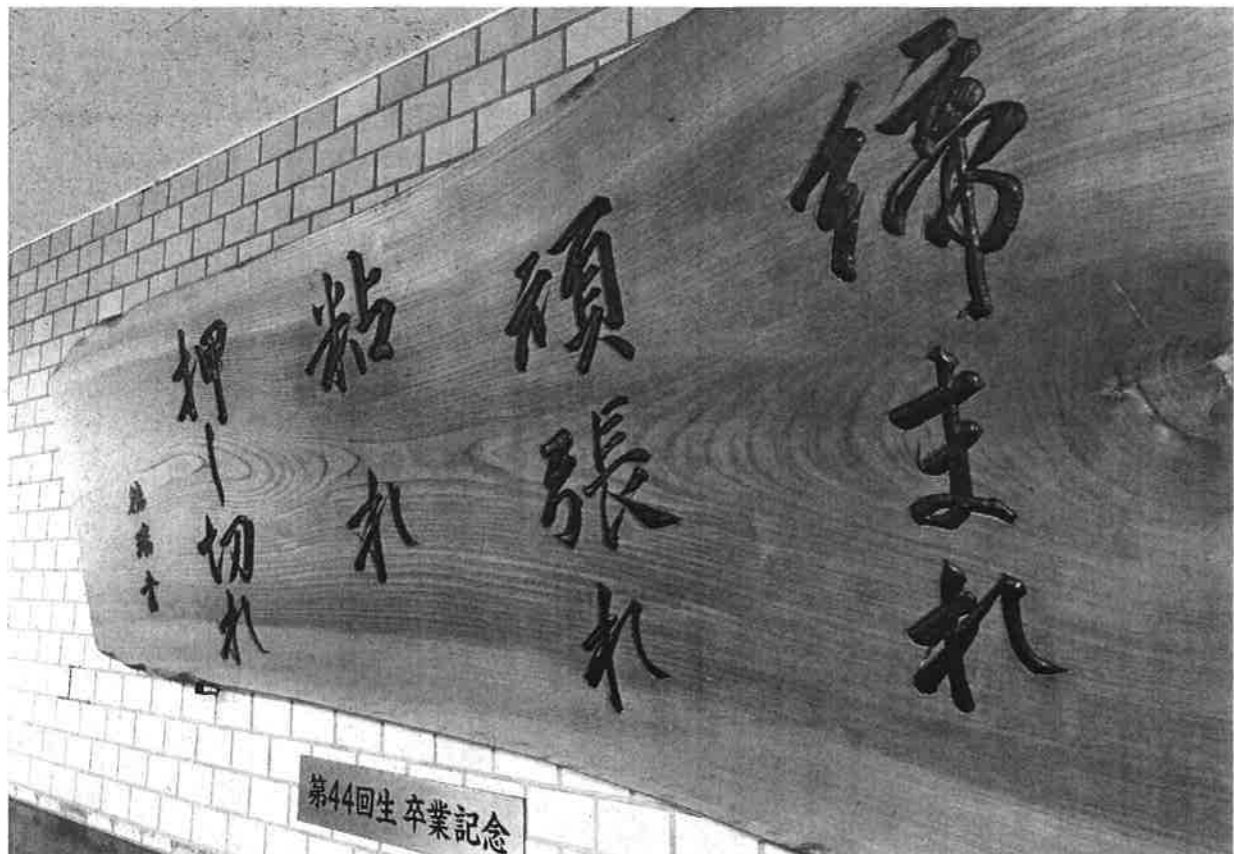 締まれ
頑張れ
粘れ
押し切れ
第44回生 卒業記念